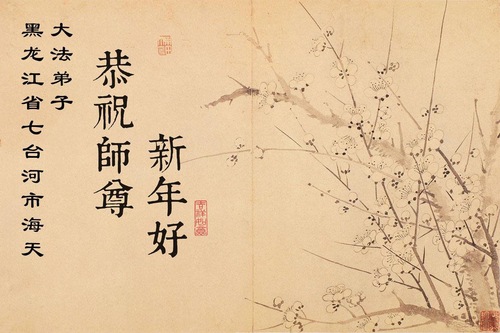 恭祝師尊
新年好
大法弟子
黑龙江省七台河市海天
吉祥如意